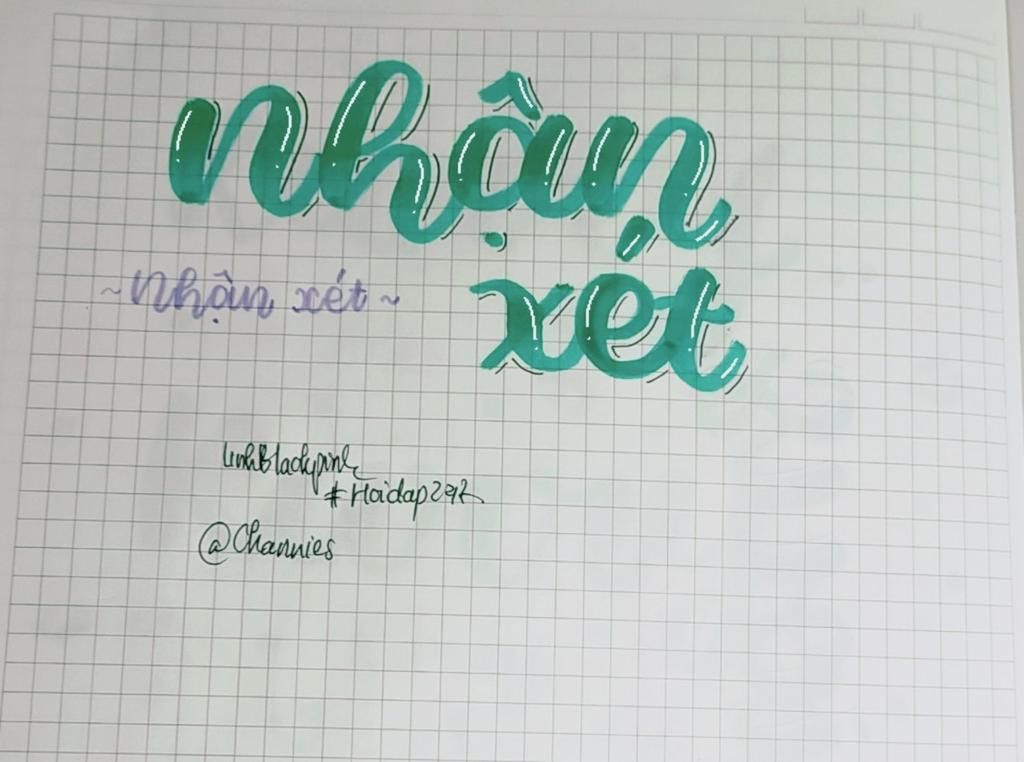 nhận
xét
~nhận xét~
linhBlackpink
#Hoidap247
@Channies